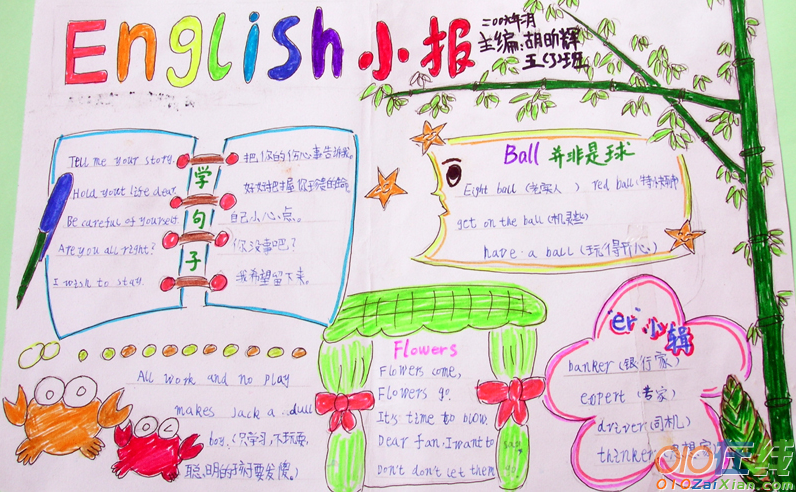 English 小报
二〇〇六年二月
主编:胡昕辉
五(2)班
学句子
Tell me your story. 把你的伤心事告诉我。
Hold yout life dear. 好好把握你
Be careful of yourself. 自己小心点。
Are you all right? 你没事吧?
I wish to stay. 我希望留下来。
Ball 并非是球
Eight ball (老实人) red ball (特快
get on the ball (机灵些)
have a ball (玩得开心)
All work and no play
makes Jack a dull
boy. (只学习,不玩耍,
聪明的孩子要变傻。)
Flowers
Flowers come,
Flowers go.
It's time to blow.
Dear fan, I want to say
Don't don't let them go.
"er"小辑
banker (银行家)
expert (专家)
driver (司机)
thinker (思想家
010在线
010ZaiXian.com